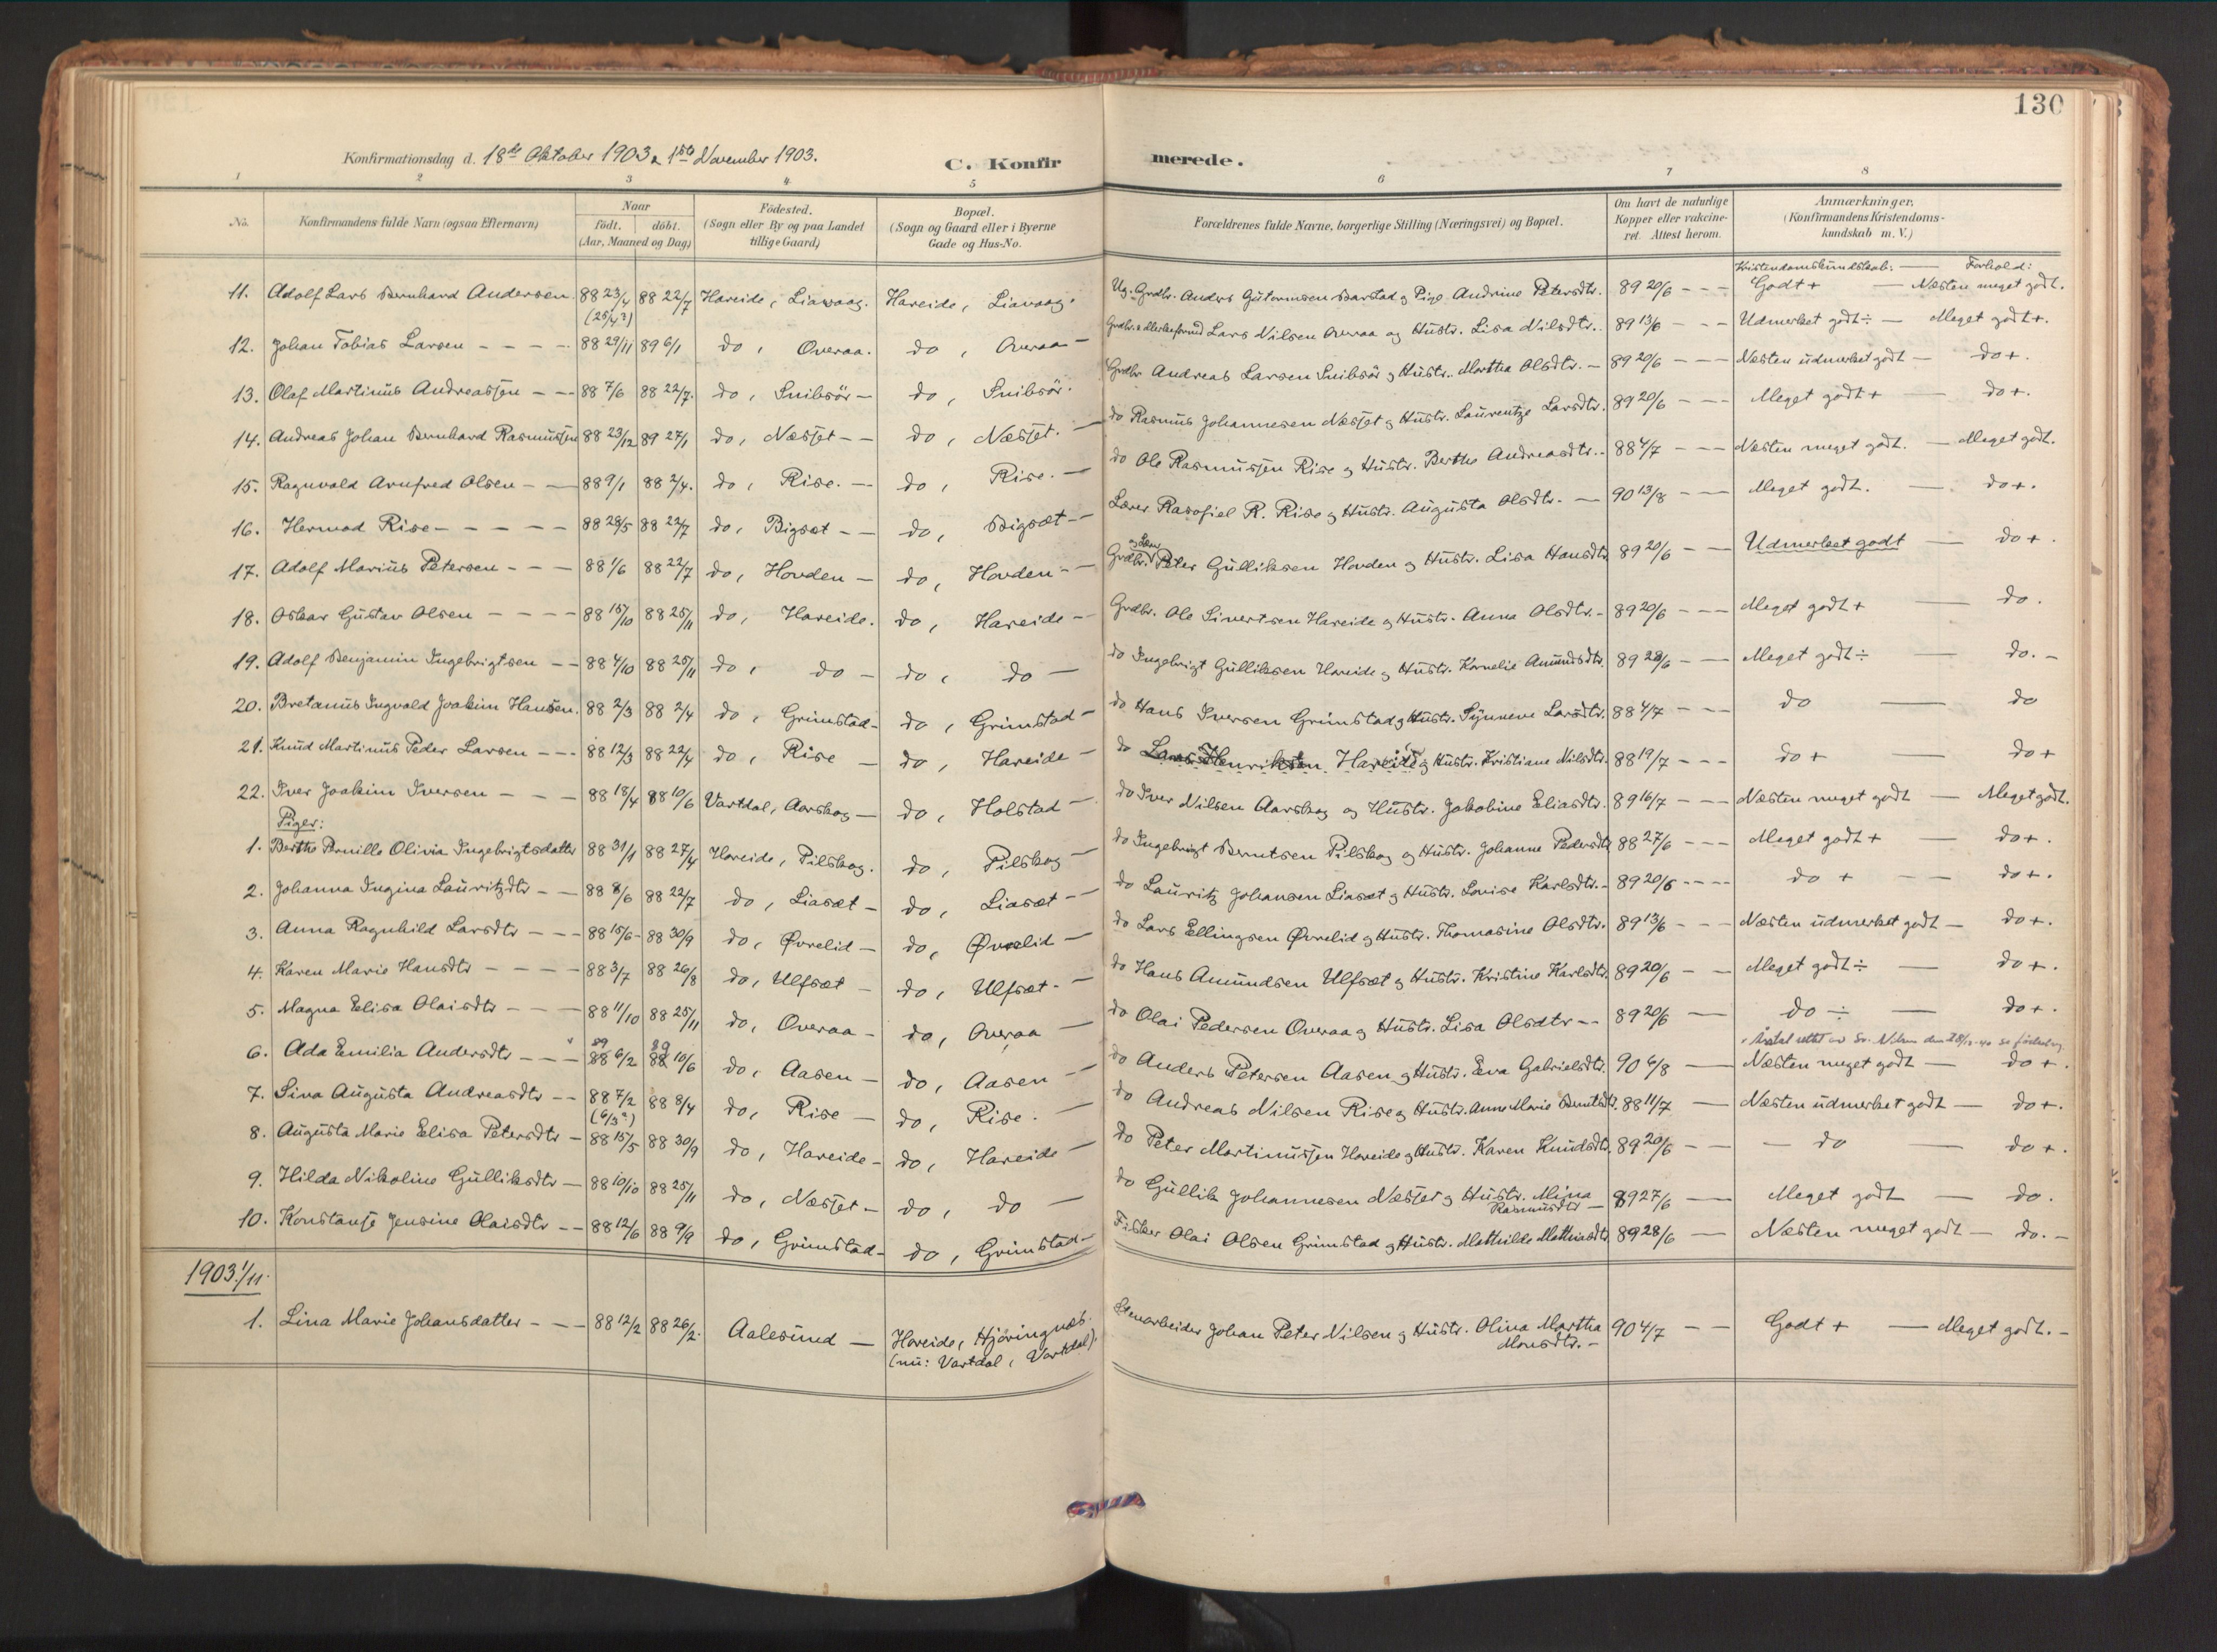 130
Konfirmationsdag d. 18de Oktober 1903 & 1ste November 1903.
C. Konfirmerede.
1 2 3 4 5 6 7 8
No. Konfirmandens fulde Navn (ogsaa Efternavn) Naar födt. döbt. (Aar, Maaned og Dag) Födested. (Sogn eller By og paa Landet tillige Gaard) Bopæl. (Sogn og Gaard eller i Byerne Gade og Hus-No. Forældrenes fulde Navne, borgerlige Stilling (Næringsvei) og Bopæl. Om havt de naturlige Kopper eller vakcineret. Attest herom. Anmærkninger. (Konfirmandens Kristendomskundskab m. V.)
Kristendomskundskab: — Forhold:
11. Adolf Lars Bernhard Andersen. 88 23/4 (25/4?) 88 22/7 Hareide, Liavaag. Hareide, Liavaag. Ug. Grdbr. Anders Gutormsen Barstad og Pige Andrine Petersdtr. 89 20/6 - - - Godt + — Næsten meget godt.
12. Johan Tobias Larsen - - - - 88 29/11 89 6/1 do, Overaa. do, Overaa - Lars Nilsen Overaa og Hustr. Lisa Nilsdtr. 89 13/6 - - - Udmerket godt ÷ — Meget godt +.
13. Olaf Martinus Andreassen - - 88 7/6 88 22/7. do, Snibsör - do, Snibsör. Grdbr. Andreas Larsen Snibsör og Hustr. Martha Olsdtr. - 89 20/6 - - - Næsten udmerket godt — do +.
14. Andreas Johan Bernhard Rasmussen 88 23/12 89 27/1 do, Næsset - - do, Næsset. - do Rasmus Johannesen Næsset og Hustr. Laurentze Larsdtr. 89 20/6 - - - Meget godt + — do +.
15. Ragnvald Arnfred Olsen - - 88 9/1 88 2/4. do, Rise. - do, Rise. - do Ole Rasmussen Rise og Hustr. Berthe Andreasdtr. - 88 4/7 - - - Næsten meget godt. — Meget godt.
16. Hermod Rise - - - - - 88 28/5 88 22/7 do, Bigset - - do, Bigset - - Lærer Rasofiel R. Rise og Hustr. Augusta Olsdtr. - 90 13/8 - - - Meget godt. — do +.
17. Adolf Marius Petersen - - - 88 1/6 88 22/7 do, Hovden - do, Hovden - - Grdbr. og Lærer Peter Gulliksen Hovden og Hustr. Lisa Hansdtr. 89 20/6 - - Udmerket godt — do +.
18. Oskar Gustav Olsen - - - - 88 15/10 88 25/11 do, Hareide. do, Hareide - Grdbr. Ole Sivertsen Hareide og Hustr. Anna Olsdtr. - 89 20/6 - - - Meget godt + — do.
19. Adolf Benjamin Ingebrigtsen - - 88 4/10 88 25/11 do, do - do, do - do Ingebrigt Gulliksen Hareide og Hustr. Kornelie Amundsdtr. 89 28/6 - - Meget godt ÷ — do. -
20. Bretanus Ingvald Joakim Hansen. 88 2/3 88 2/4 do, Grimstad - do, Grimstad - do Hans Iversen Grimstad og Hustr. Synneve Larsdtr. 88 4/7 - - - do — do
21. Knud Martinus Peder Larsen - - - 88 12/3 88 22/4 do, Rise - do, Hareide - do Lars Henriksen Hareide og Hustr. Kristiane Nilsdtr. 88 19/7 - - - do + — do +
22. Iver Joakim Iversen - - - 88 18/4 88 10/6 Vartdal, Aarskog - do, Holstad - do Iver Nilsen Aarskog og Hustr. Jakobine Eliasdtr. 89 16/7 - - - Næsten meget godt — Meget godt.
Piger:
1. Berthe Pernille Olivia Ingebrigtsdatter 88 31/1 88 27/4 Hareide, Pilskog. do, Pilskog - do Ingebrigt Berntsen Pilskog og Hustr. Johanne Pedersdtr. 88 27/6 - - - Meget godt + — do +.
2. Johanna Ingina Lauritzdtr - - 88 8/6 88 22/7 do, Liaset - do, Liaset - - do Lauritz Johansen Liaset og Hustr. Lovise Karlsdtr. - 89 20/6 - - - - do + - - do +.
3. Anna Ragnhild Larsdtr - - - 88 15/6 - 88 30/9 do, Øvrelid - do, Øvrelid - do Lars Ellingsen Øvrelid og Hustr. Thomasine Olsdtr. 89 13/6 - - - Næsten udmerket godt — do +.
4. Karen Marie Hansdtr - - - - 88 3/7 88 26/8 do, Ulfsæt - do, Ulfsæt - - do Hans Amundsen Ulfsæt og Hustr. Kristine Karlsdtr. 89 20/6 - - Meget godt ÷ — do +.
5. Magna Elisa Olaisdtr - - - 88 11/10 88 25/11 do, Overaa - do, Overaa - do Olai Pedersen Overaa og Hustr. Lisa Olsdtr - - 89 20/6 - do ÷ — do +.
6. Ada Emilia Andersdtr - - - 89 88 6/2 89 88 10/6 do, Aasen - do, Aasen - - do Anders Petersen Aasen og Hustr. Eva Gabrielsdtr. 90 6/8 - Næsten meget godt — do +.
7. Sina Augusta Andreasdtr - - 88 7/2 (6/3?) 88 8/4 do, Rise - do, Rise. - do Andreas Nilsen Rise og Hustr. Anne Marie Berntsdtr. 88 11/7 - Næsten udmerket godt — do +.
8. Augusta Marie Elisa Petersdtr - 88 15/5 88 30/9 do, Hareide - do, Hareide - do Peter Martinussen Hareide og Hustr. Karen Knudsdtr. 89 20/6 - - - do — do +.
9. Hilda Nikoline Gulliksdtr - 88 10/10 88 25/11 do, Næsset - do, do - do Gullik Johannesen Næsset og Hustr. Mina Rasmusdtr - 89 27/6 - Meget godt — do.
10. Konstanse Jensine Olaisdtr - - 88 12/6 88 9/9 do, Grimstad - do, Grimstad - Fisker Olai Olsen Grimstad og Hustr. Mathilde Mathiasdtr. 89 28/6 - Næsten meget godt — do. -
1903 1/11.
1. Lina Marie Johansdatter - - - 88 12/2 88 26/2. Aalesund - Hareide, Hjöringnæs. (nu: Vartdal, Vartdal). Johan Peter Nilsen og Hustr. Olina Martha Monsdtr. - 90 4/7 - - Godt + — Meget godt. -